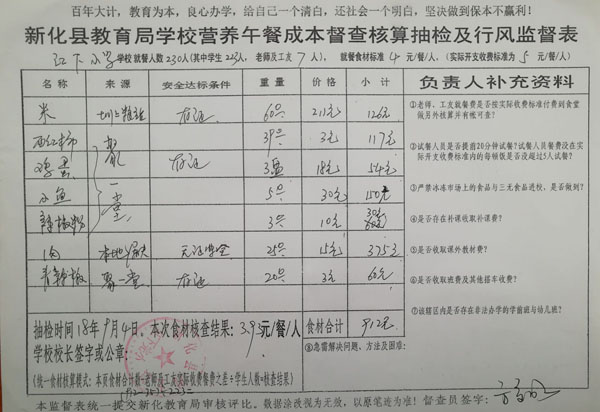 百年大计，教育为本，良心办学，给自己一个清白，还社会一个明白，坚决做到保本不赢利！
新化县教育局学校营养午餐成本督查核算抽检及行风监督表
江下小学学校就餐人数230人(其中学生223人，老师及工友7人)，就餐食材标准4元/餐/人，(实际开支收费标准为5元/餐/人)
名称 来源 安全达标条件 重量 价格 小计 负责人补充资料
米 有证 60斤 2.1元 126元
①老师、工友就餐费是否按实际收费标准付到食堂做另外核算并有帐可查？
西红柿 39斤 3元 117元
鸡蛋 有证 3盘 18元 54元
②试餐人员是否提前20分钟试餐？试餐人员餐费没在实际开支收费标准内的每顿饭是否没超过5人试餐？
小鱼 5斤 30元 150元
③严禁冰冻市场上的食品与三无食品进校，是否做到？
辣椒粉 3斤 10元 30元
④是否存在补课收取补课费？
肉 本地 25斤 15元 375元
⑤是否收取课外教材费？
青辣椒 聚一堂 有证 20斤 3元 60元
⑥是否收取班费及其他搭车收费？
⑦该辖区内是否存在非法办学的学前班与幼儿班？
抽检时间18年9月4日，本次食材核查结果：3.93元/餐/人 食材合计 912元
学校校长签字或公章：
⑧急需解决问题、方法及困难：
(统一食材核算模式：本页食材合计数-老师及工友实际收费餐费之差÷学生人数=核查结果)
本监督表统一提交新化教育局审核评比。数据涂改视为无效，以原笔迹为准！督查员签字：